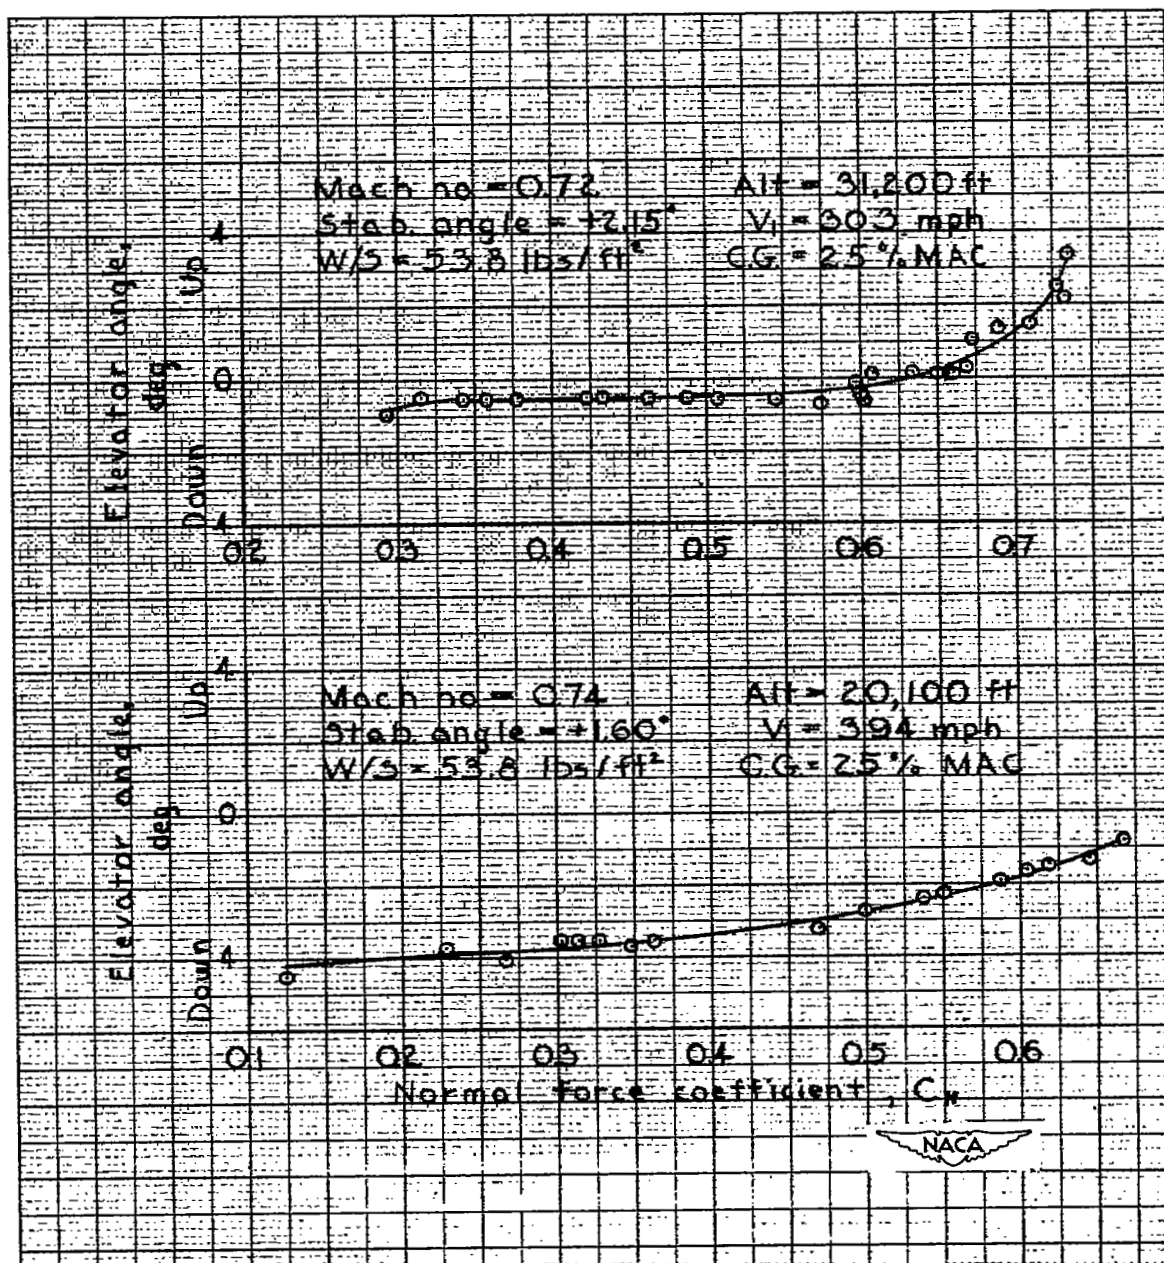 Mach no = 0.72
Stab. angle = +2.15°
W/S = 53.8 lbs/ft²
Alt = 31,200 ft
Vi = 303 mph
C.G. = 25 % MAC
Elevator angle,
deg
Up
Down
4
0
4
0.2 0.3 0.4 0.5 0.6 0.7
Mach no = 0.74
Stab. angle = +1.60°
W/S = 53.8 lbs/ft²
Alt = 20,100 ft
Vi = 394 mph
C.G. = 25 % MAC
Elevator angle,
deg
Up
Down
4
0
4
0.1 0.2 0.3 0.4 0.5 0.6
Normal force coefficient, C_N
NACA